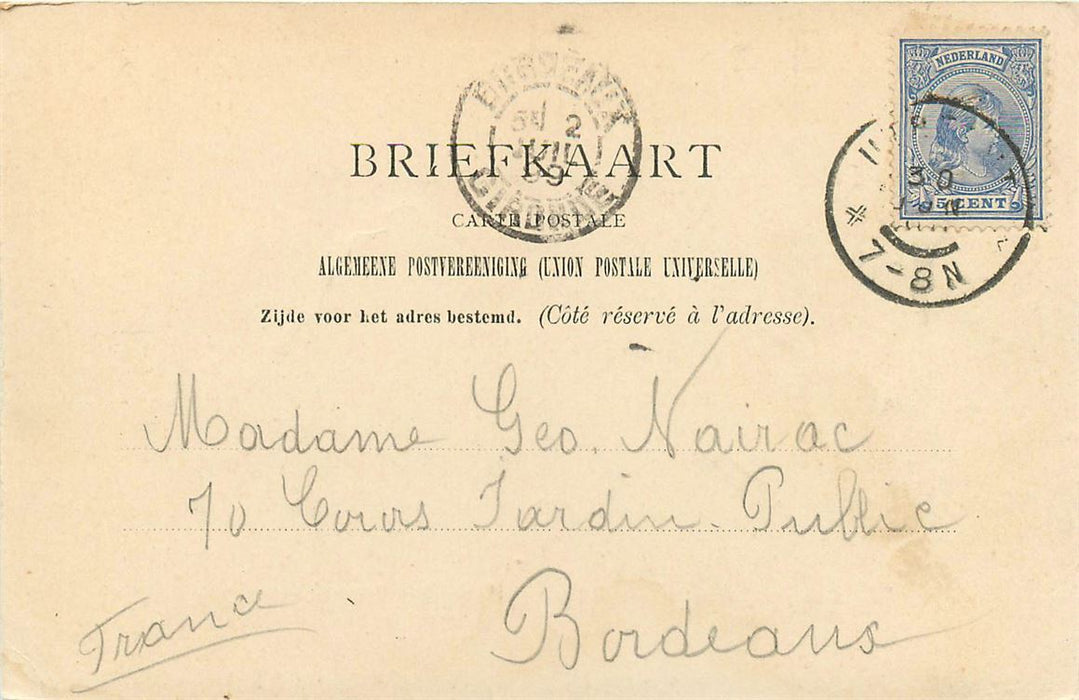 NEDERLAND
5 CENT
30
7-8N
BORDEAUX
2
GIRONDE
BRIEFKAART
CARTE POSTALE
ALGEMEENE POSTVEREENIGING (UNION POSTALE UNIVERSELLE)
Zijde voor het adres bestemd. (Côté réservé à l'adresse).
Madame Geo. Nairac
70 Cours Jardin-Public
Bordeaux
France